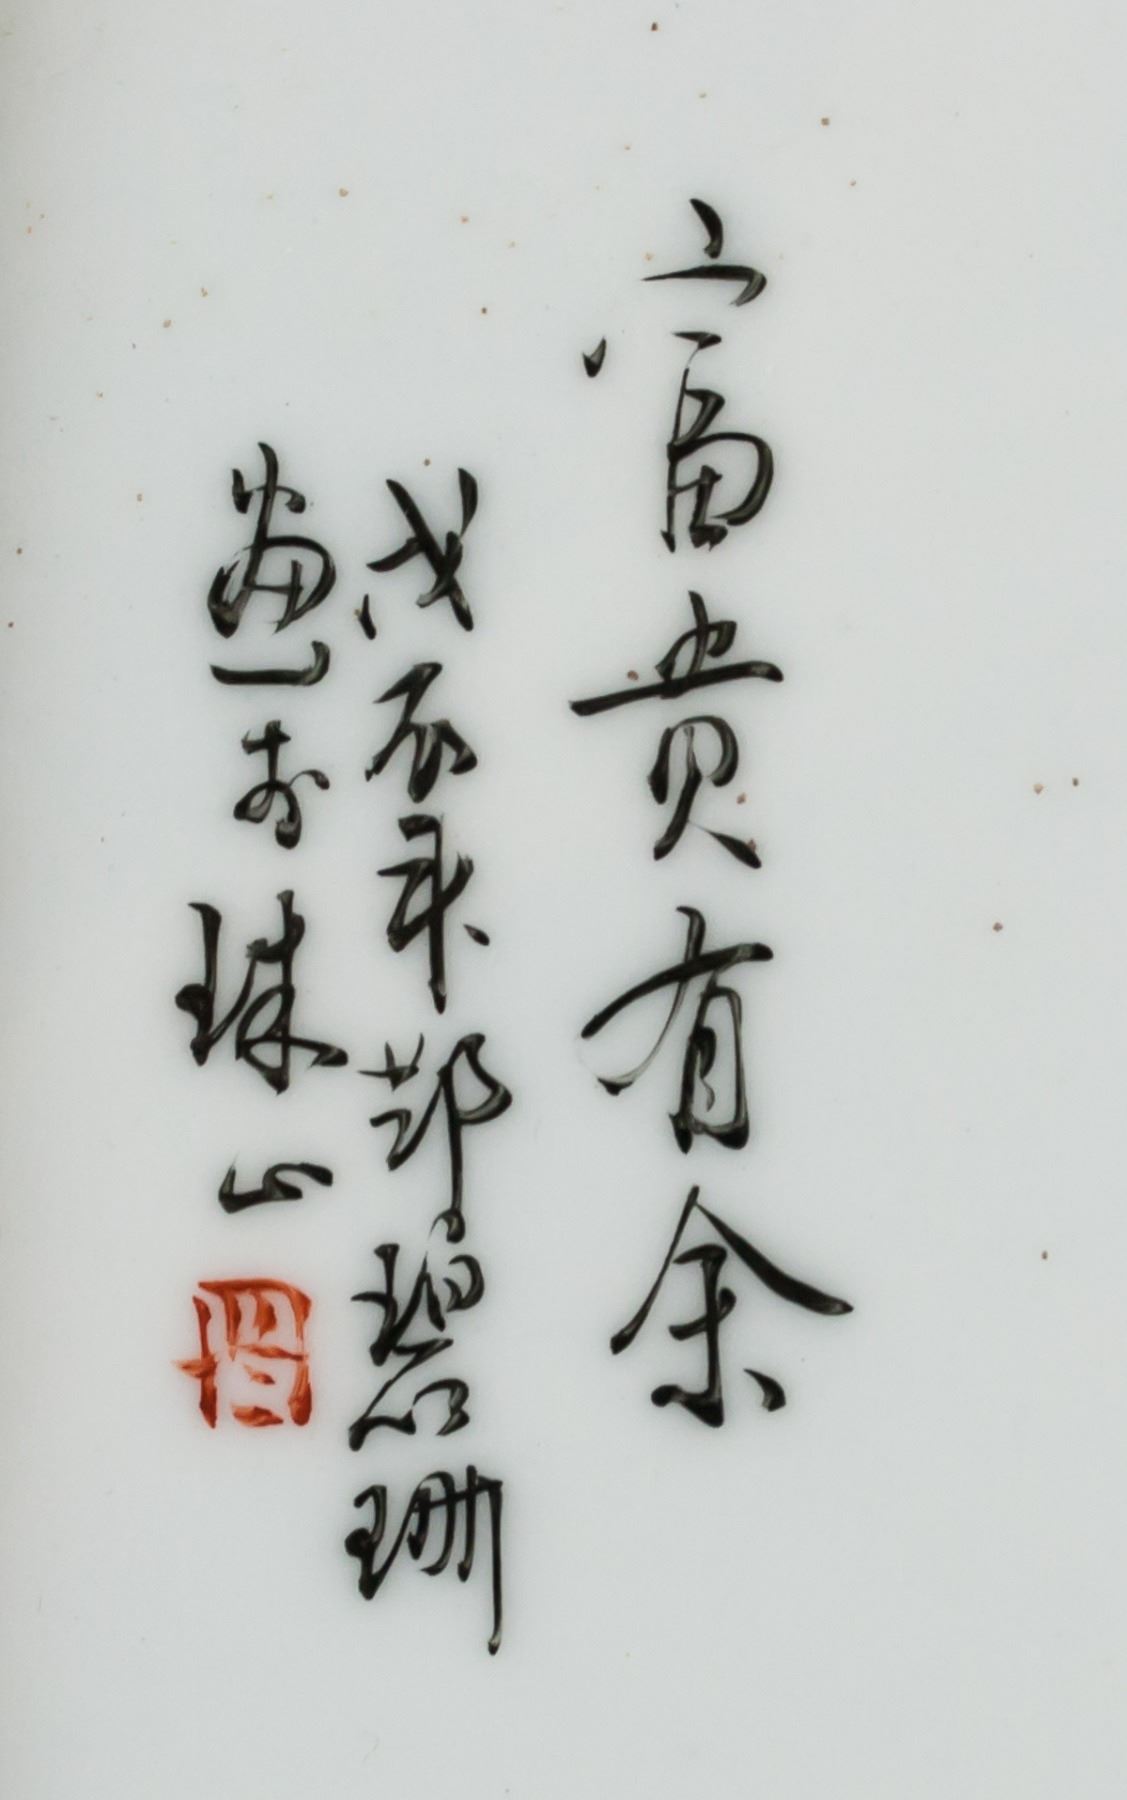 富贵有余
戊辰年邓碧珊
画于珠山